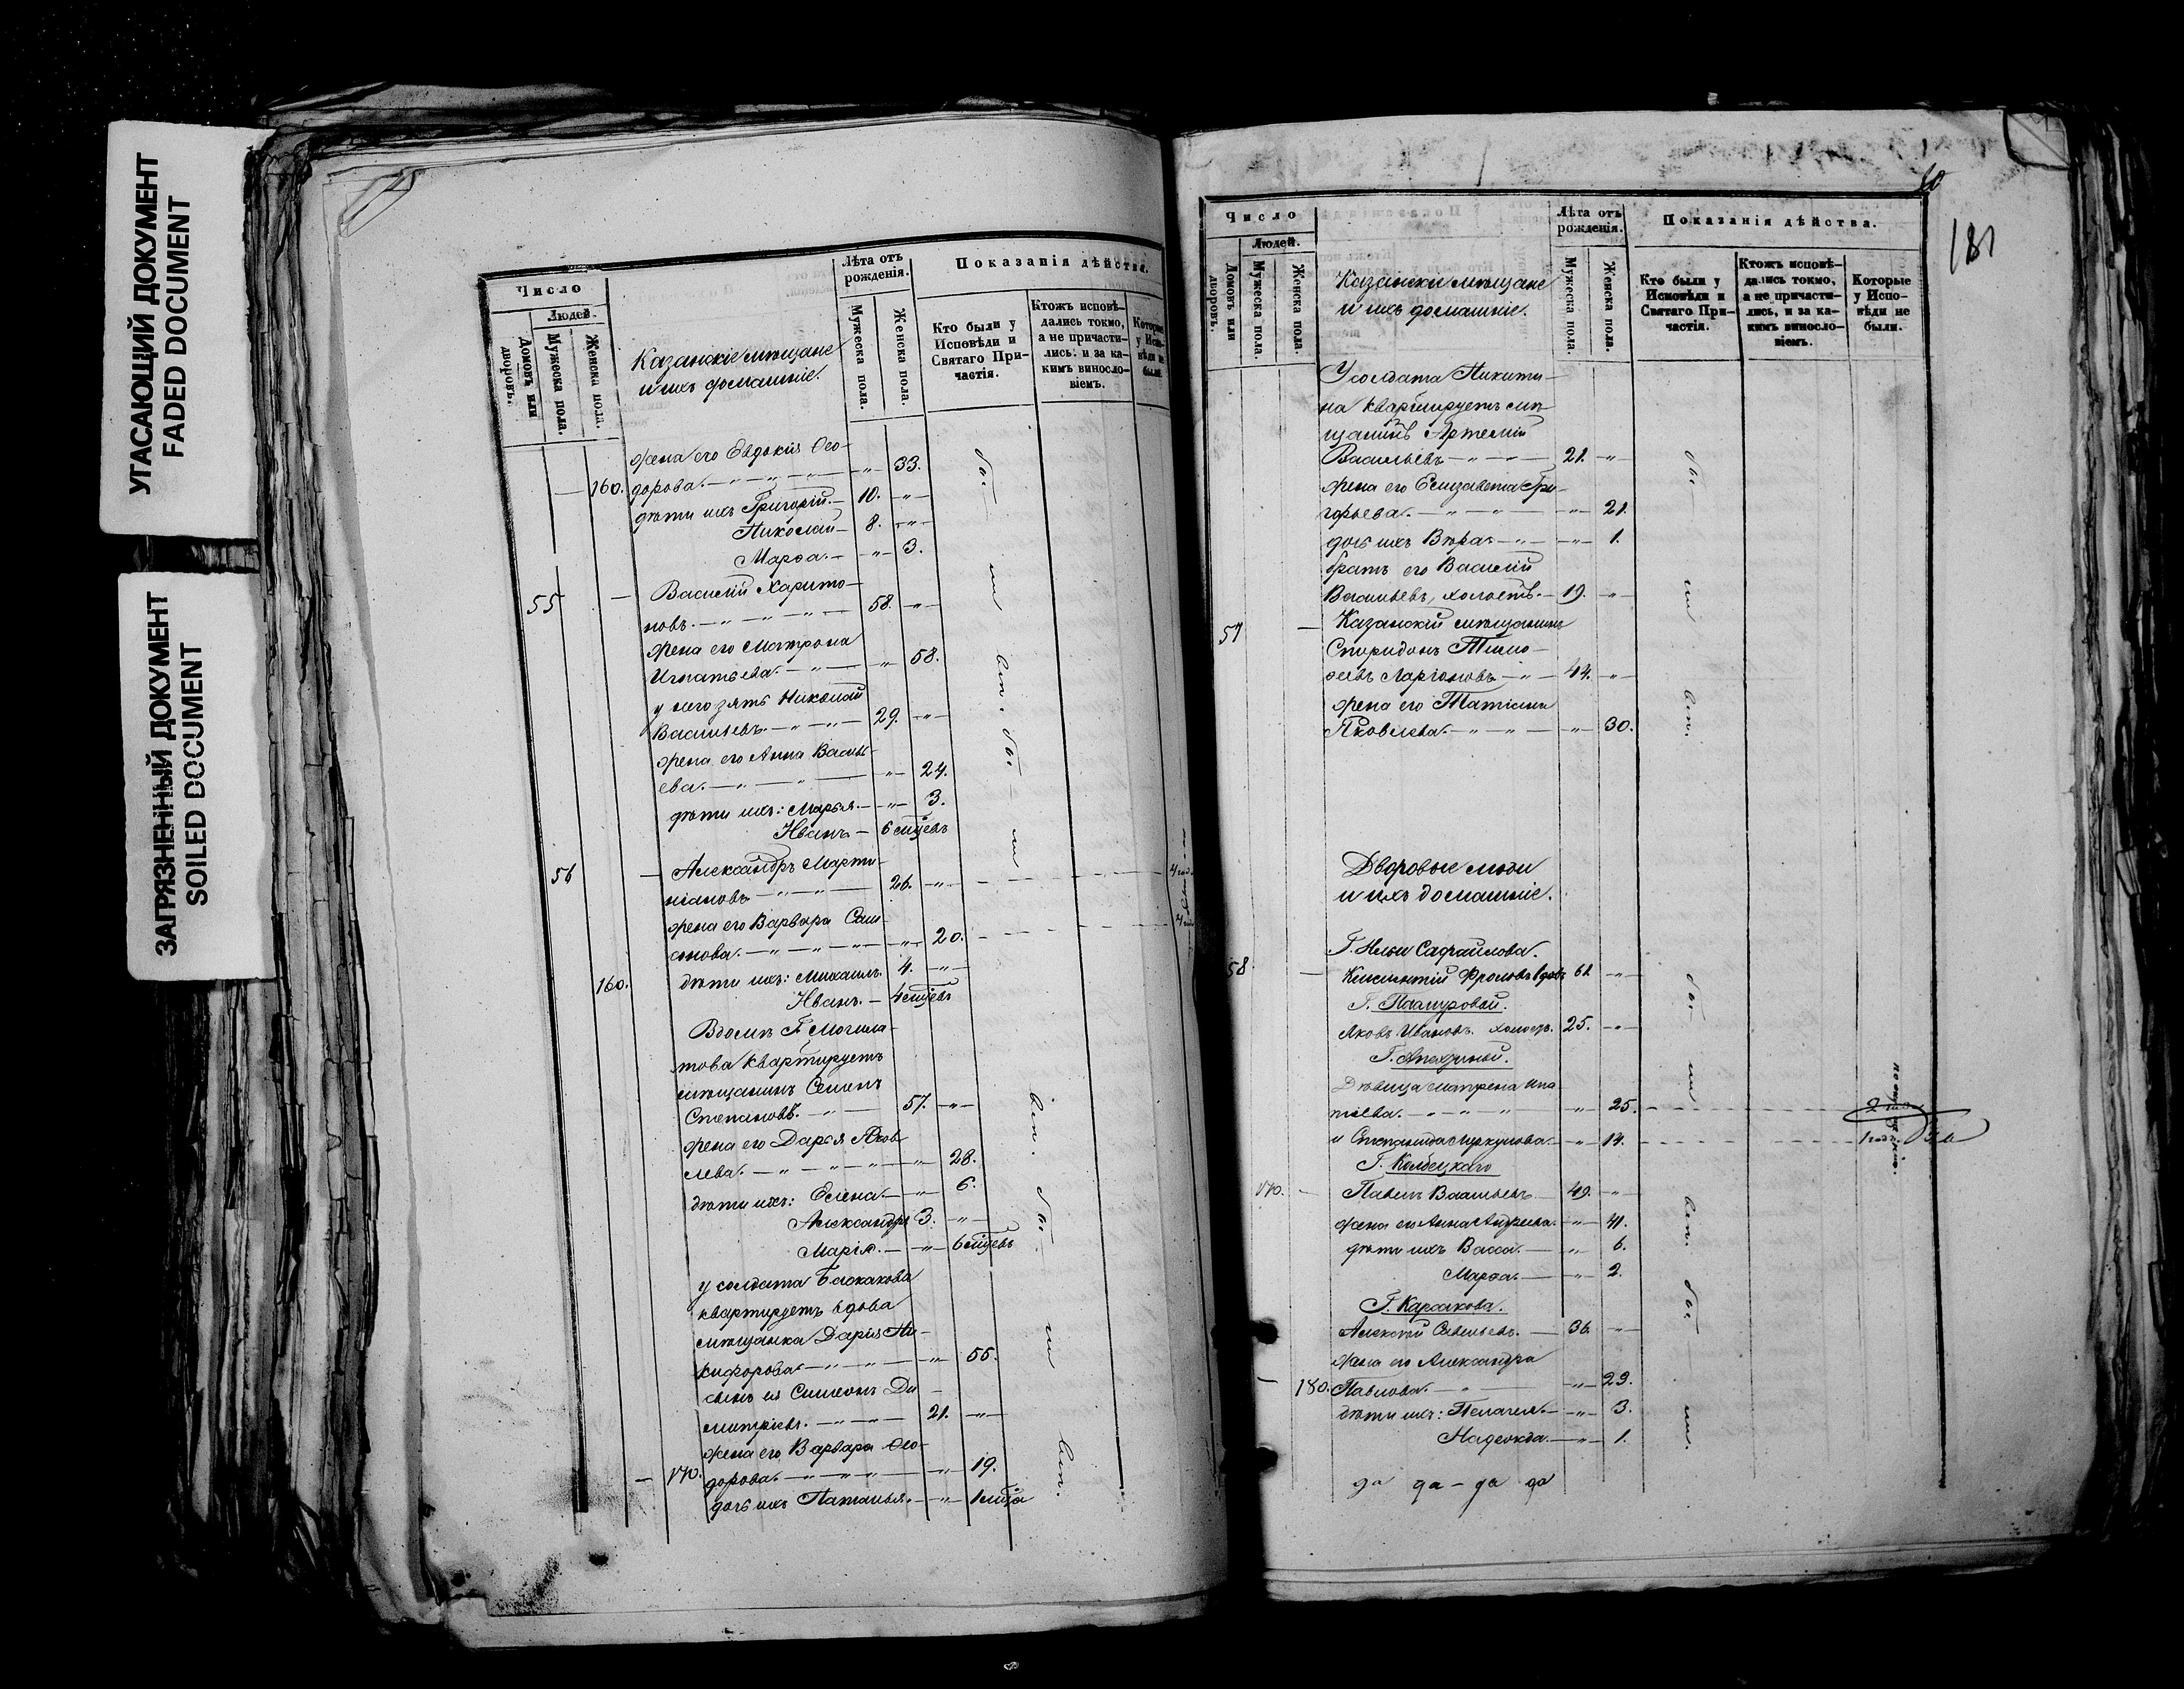 УГАСАЮЩИЙ ДОКУМЕНТ
FADED DOCUMENT
ЗАГРЯЗНЕННЫЙ ДОКУМЕНТ
SOILED DOCUMENT
Число
Людей.
Домовъ или дворовъ.
Мужеска пола.
Женска пола.
Казанскіе мѣщане
и ихъ домашніе.
Лѣта отъ рожденія.
Мужеска пола.
Женска пола.
Показанія дѣйства.
Кто были у Исповѣди и Святаго Причастія.
Ктожъ исповѣдались токмо, а не причастились, и за какимъ винословіемъ.
Которые у Исповѣди не были.
жена его Евдокія Ѳео-
160. дорова. — „ — „ — „ — „ — 33.
дѣти ихъ Григорій. — 10. — „ —
Николай — 8. — „ —
Марѳа. — — „ — 3.
55 — Василій Харито-
новъ. — „ — „ — „ — 58. — „ —
жена его Матрона
Игнатьева. — „ — — „ — 58.
у него зять Николай
Васильевъ. — „ — „ — 29. — „ —
жена его Анна Василь-
ева. — „ — „ — — „ — 24.
дѣти ихъ: Марья. — — „ — 3.
Иванъ. — 6 мцевъ
56 — Александръ Марти-
ніановъ — „ — „ — 26. — „ —
жена его Варвара Сам-
сонова. — „ — „ — „ — — „ — 20.
160. дѣти ихъ: Михаилъ. 4. — „ —
Иванъ. — 4 мцевъ
Въ домѣ Г. Могила-
това квартируетъ
мѣщанинъ Семенъ
Степановъ. — „ — 57. — „ —
жена его Дарья Яков-
лева. — „ — „ — „ — — „ — 28.
дѣти ихъ: Елена. — — „ — 6.
Александръ 3. — „ —
Марія. — — „ — 6 мцевъ
у солдата Баскакова
квартируетъ вдова
мѣщанка Дарія Ни-
кифорова — „ — „ — — „ — 55.
сынъ ея Симеонъ Ди-
митріевъ. — „ — „ — 21. — „ —
жена его Варвара Ѳео-
170. дорова. — „ — „ — „ — — „ — 19.
дочь ихъ Наталья. — — „ — 1 мца
бы — ли вст. бы — ли
вст. бы ли вст.
60
181
Число
Людей.
Домовъ или дворовъ.
Мужеска пола.
Женска пола.
Казанскіи мѣщане
и ихъ домашніе.
Лѣта отъ рожденія.
Мужеска пола.
Женска пола.
Показанія дѣйства.
Кто были у Исповѣди и Святаго Причастія.
Ктожъ исповѣдались токмо, а не причастились, и за какимъ винословіемъ.
Которые у Исповѣди не были.
У солдата Никити-
на квартируетъ мѣ-
щанинъ Артемій
Васильевъ — „ — „ — 21. — „ —
жена его Елизавета Гри-
горьева. — „ — „ — — „ — 21.
дочь ихъ Вѣра — „ — — „ — 1.
братъ его Василій
Васильевъ, холостъ. — 19. — „ —
57 — Казанскій мѣщанинъ
Спиридонъ Тимо-
ѳевъ Ларіоновъ — „ — 44. — „ —
жена его Татіана
Яковлева. — „ — „ — — „ — 30.
Дворовые люди
и ихъ домашніе.
58 —
61. — „ —
Яковъ Ивановъ. холостъ. 25. — „ —
Дѣвица Матрена Ипа
тьева. — „ — „ — „ — „ — 25.
и Степанида Меркулова. — „ — 14. 1 годъ
170. — Павелъ Васильевъ — 49. — „ —
жена его Анна Андреева. — „ — 41.
дѣти ихъ Васса. — — „ — 6.
Марѳа. — — „ — 2.
Г. Карсакова.
Алексѣй Савельевъ. — 36. — „ —
жена его Александра
180. Павлова. — „ — — „ — 29.
дѣти ихъ: Пелагея. — — „ — 3.
Надежда. — — „ — 1.
да да — да да
бы — ли вст.
бы — ли вст. бы ли.